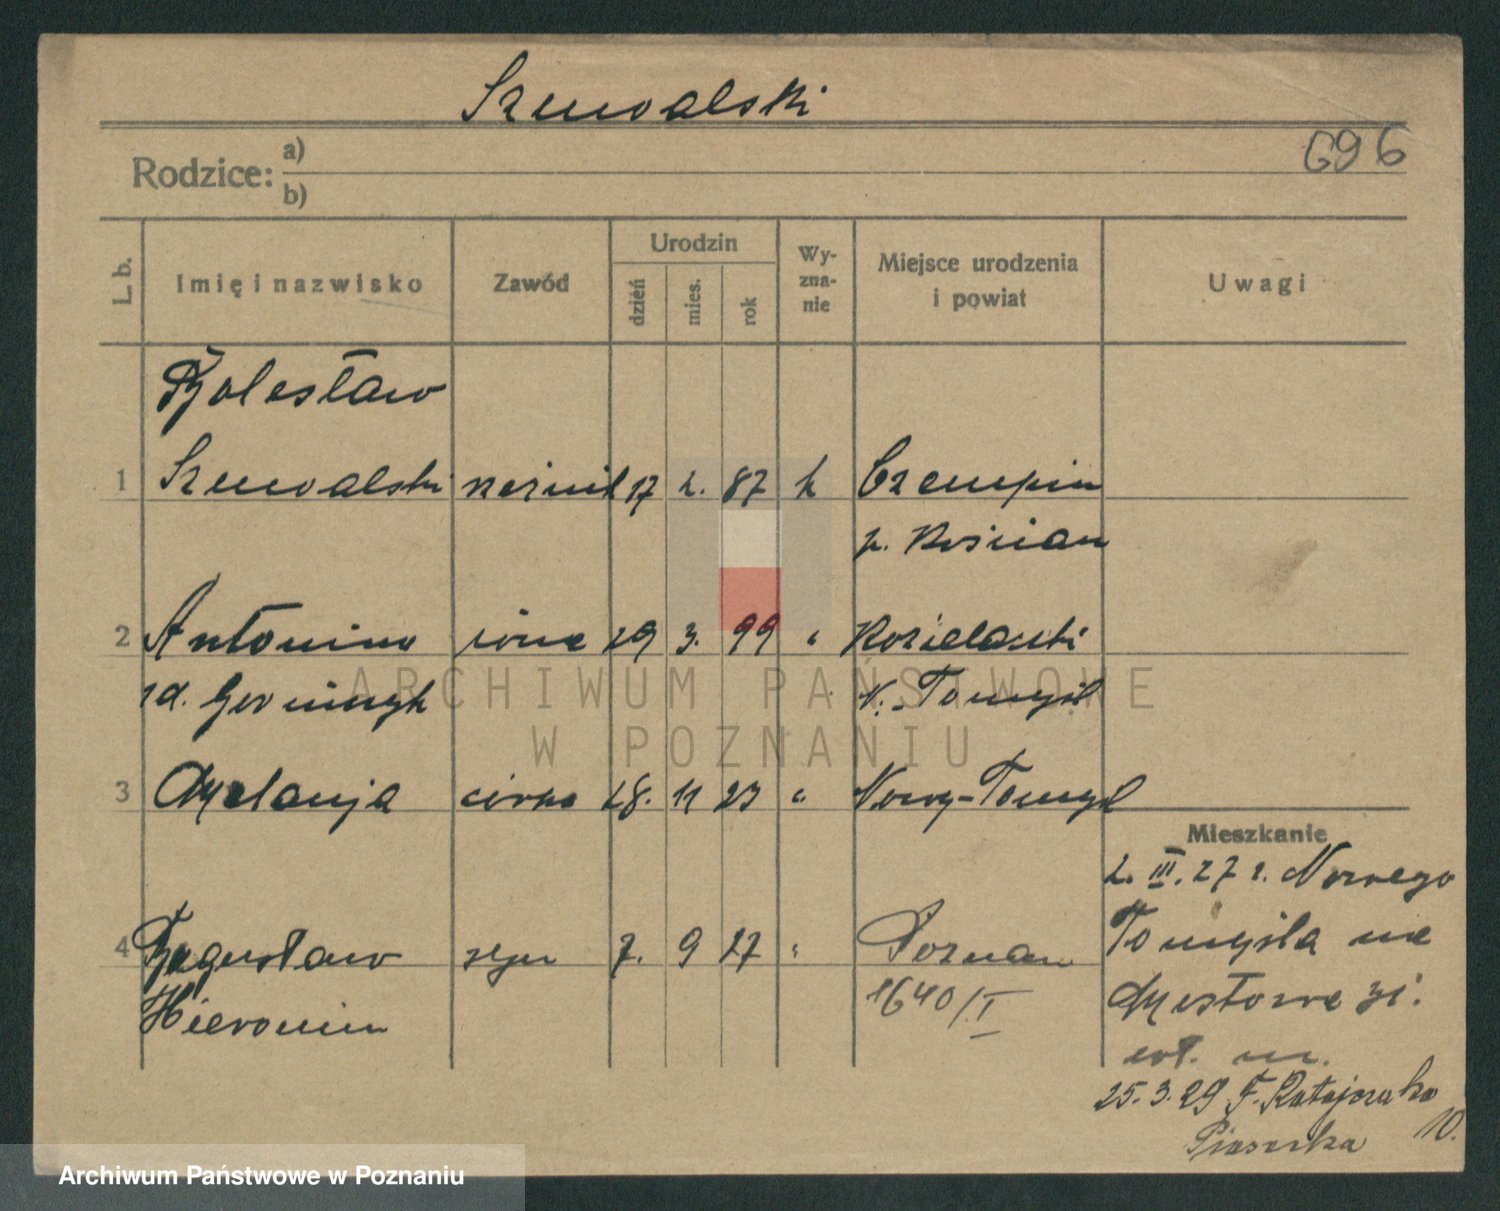 Szuwalski
696
Rodzice: a)
b)
L. b.
Imię i nazwisko
Zawód
Urodzin
dzień
mies.
rok
Wy-
zna-
nie
Miejsce urodzenia
i powiat
Uwagi
Bolesław
1 Szuwalski rzeźnik 17 2. 87 k Czempin
p. Kościan
2 Antonina żona 29 3. 99 "
N.-Tomyśl
3 Melanja córka 28. 11 23 " Nowy-Tomyśl
Mieszkanie
2. III. 27 r. Nowego
4 Bogusław syn 7. 9 27 " Poznań
Tomyśla na
Hieronim
1640/I
25.3.29 F. Ratajczaka
10.
Piaserka
ARCHIWUM PAŃSTWOWE
W POZNANIU
Archiwum Państwowe w Poznaniu